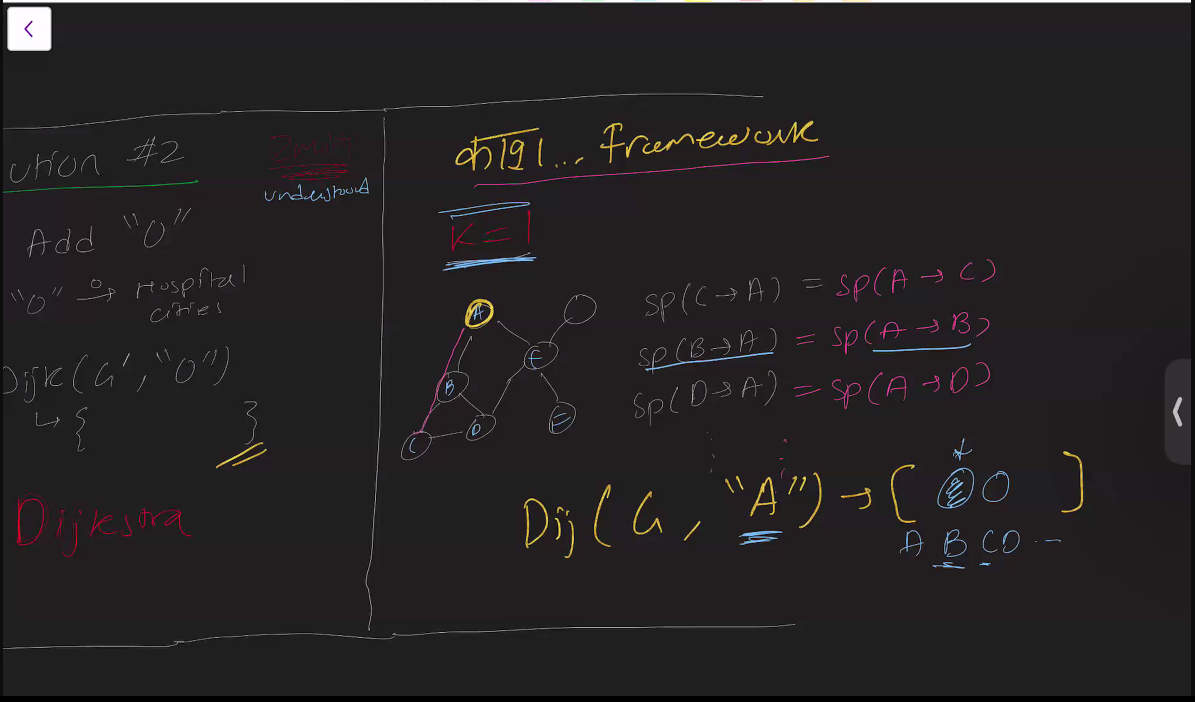 ution #2
understood
Add "O"
"O" → Hospital
cities
Dijk(G', "O")
↳ {
}
Dijkstra
काधा... framework
K = 1
A
E
B
D
C
E
sp(C→A) = sp(A→C)
sp(B→A) = sp(A→B)
sp(D→A) = sp(A→D)
Dij(G, "A") → [ ]
A B C D ...